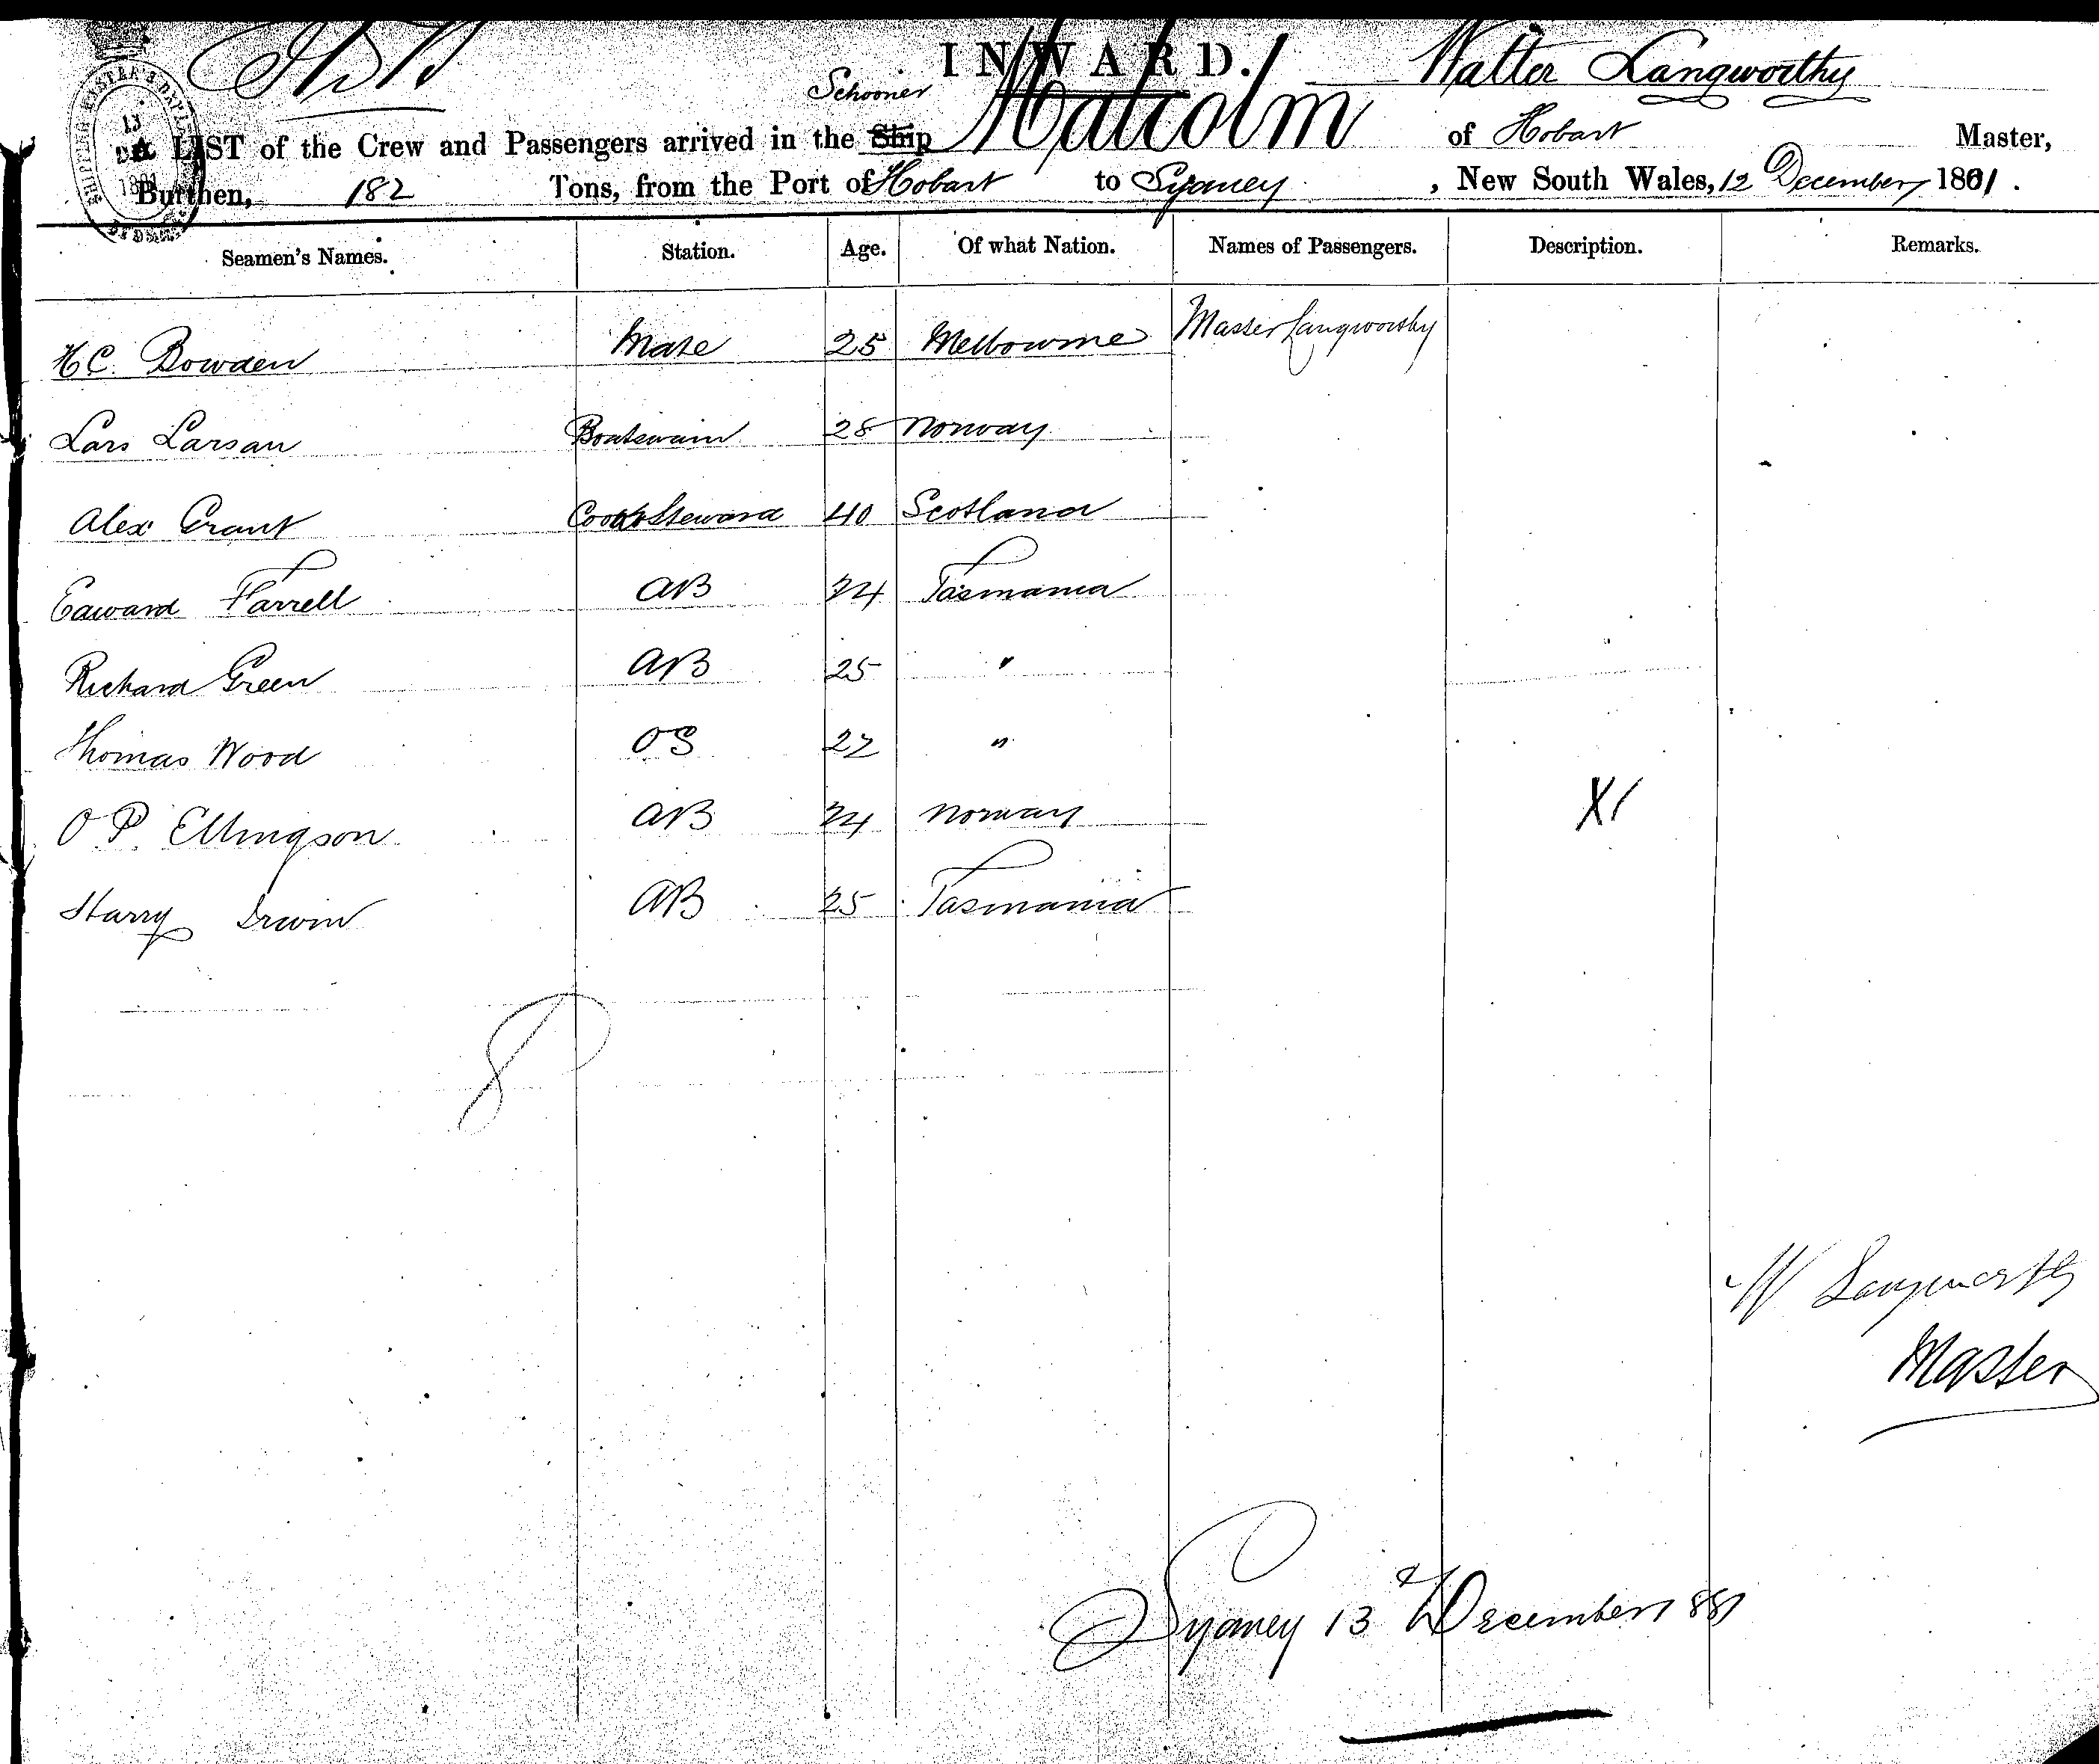 INWARD.
Schooner Malcolm Walter Langworthy
A LIST of the Crew and Passengers arrived in the Ship of Hobart Master,
Burthen, 182 Tons, from the Port of Hobart to Sydney, New South Wales, 12 December 1881.
Seamen's Names. Station. Age. Of what Nation. Names of Passengers. Description. Remarks.
H C. Bowden Mate 25 Melbourne Master Langworthy
Lars Larsan Boatswain 28 Norway
Alex Grant Cook & Steward 40 Scotland
Edward Farrell AB 24 Tasmania
Richard Green AB 25 "
Thomas Wood OS 22 "
O P. Ellingson AB 24 Norway
X1
Harry Irwin AB 25 Tasmania
8
W Langworthy
Master
Sydney 13th December 1881